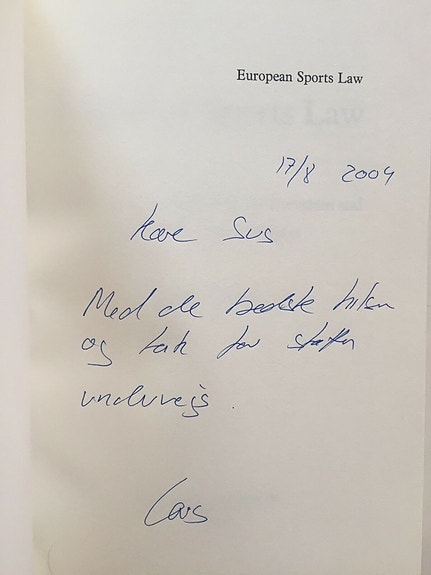 European Sports Law
17/8 2004
Kære Sus
Med de bedste hilsn
og tak for støtten
undervejs.
Lars